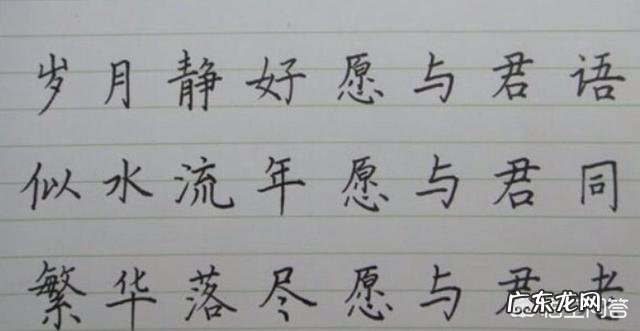 岁月静好愿与君语
似水流年愿与君同
繁华落尽愿与君老
广东龙网